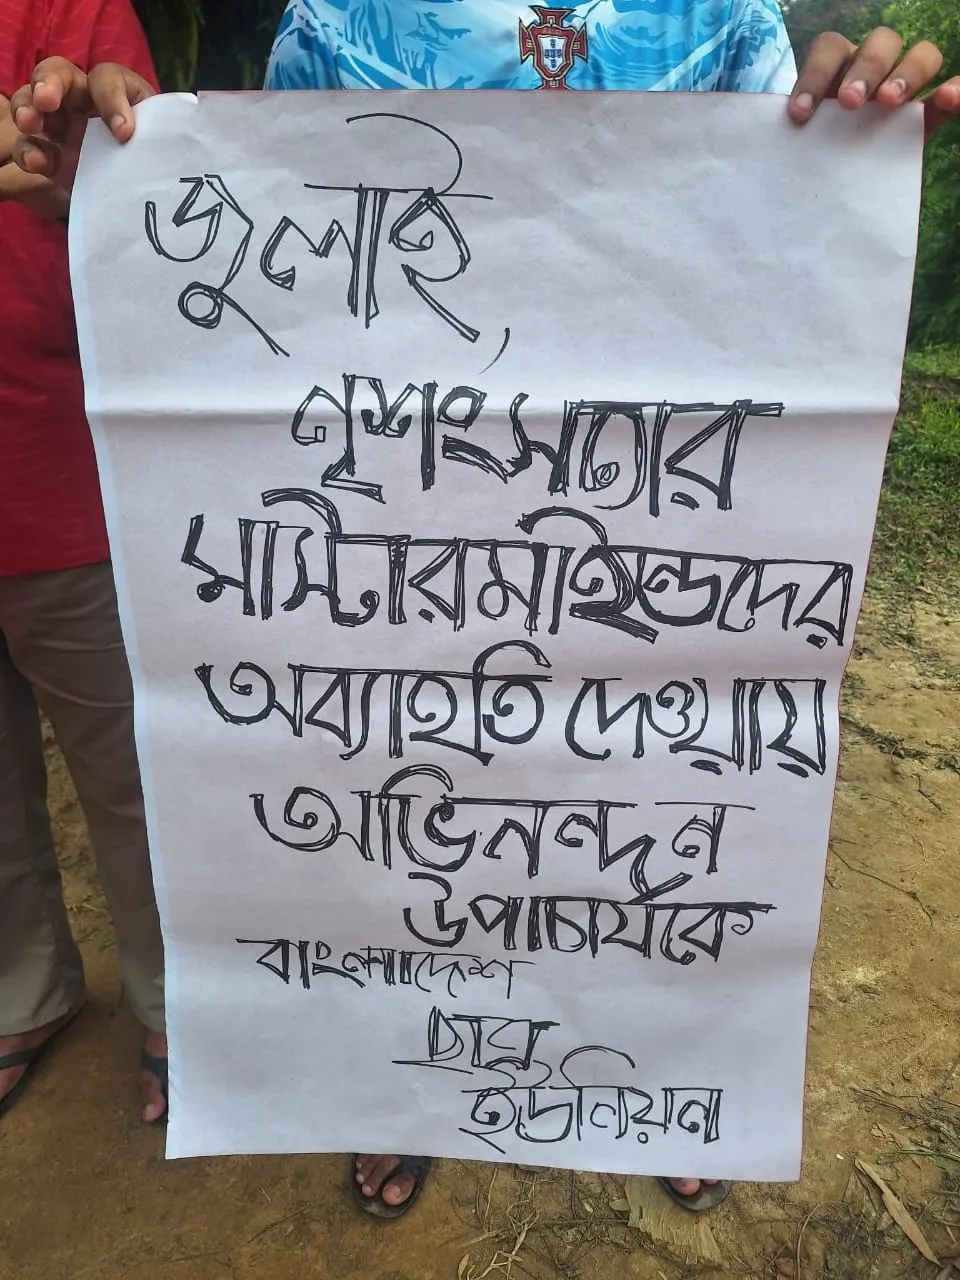 জুলাই,
নৃশংসতার
মাস্টারমাইন্ডদের
অব্যাহতি দেওয়ায়
অভিনন্দন
উপাচার্যকে
বাংলাদেশ
ছাত্র
ইউনিয়ন